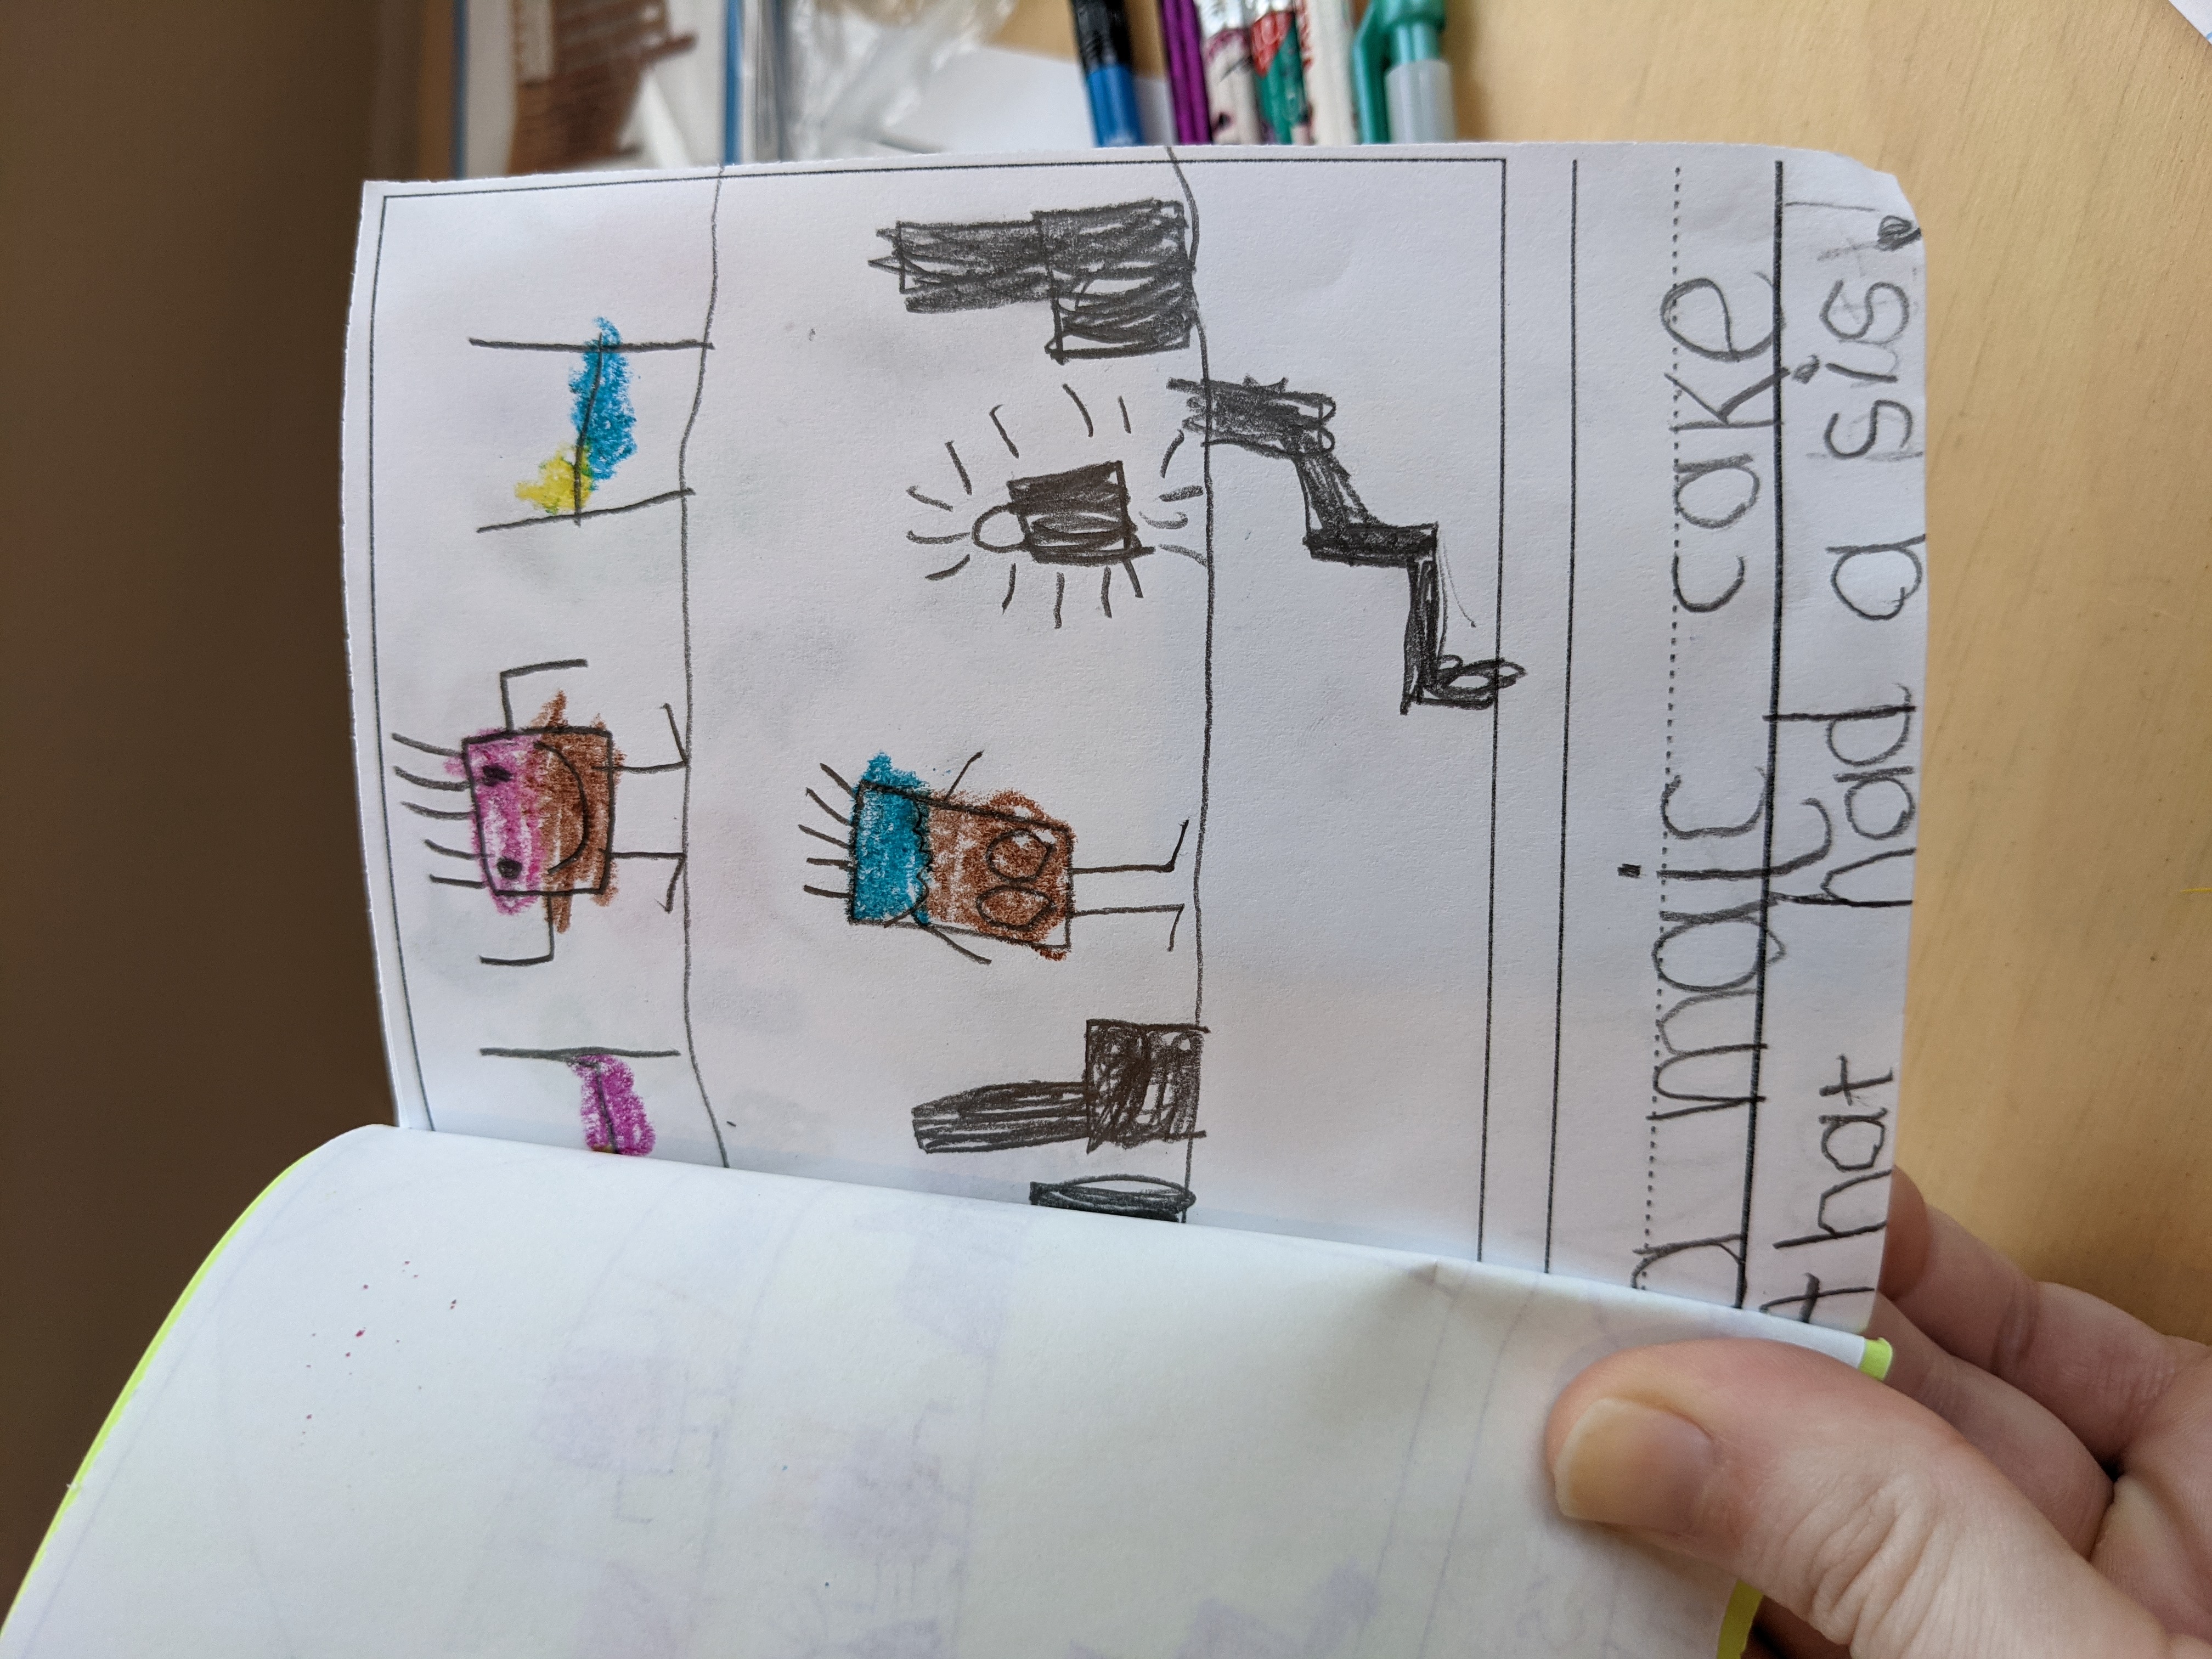 a majc cake
that had a sis!